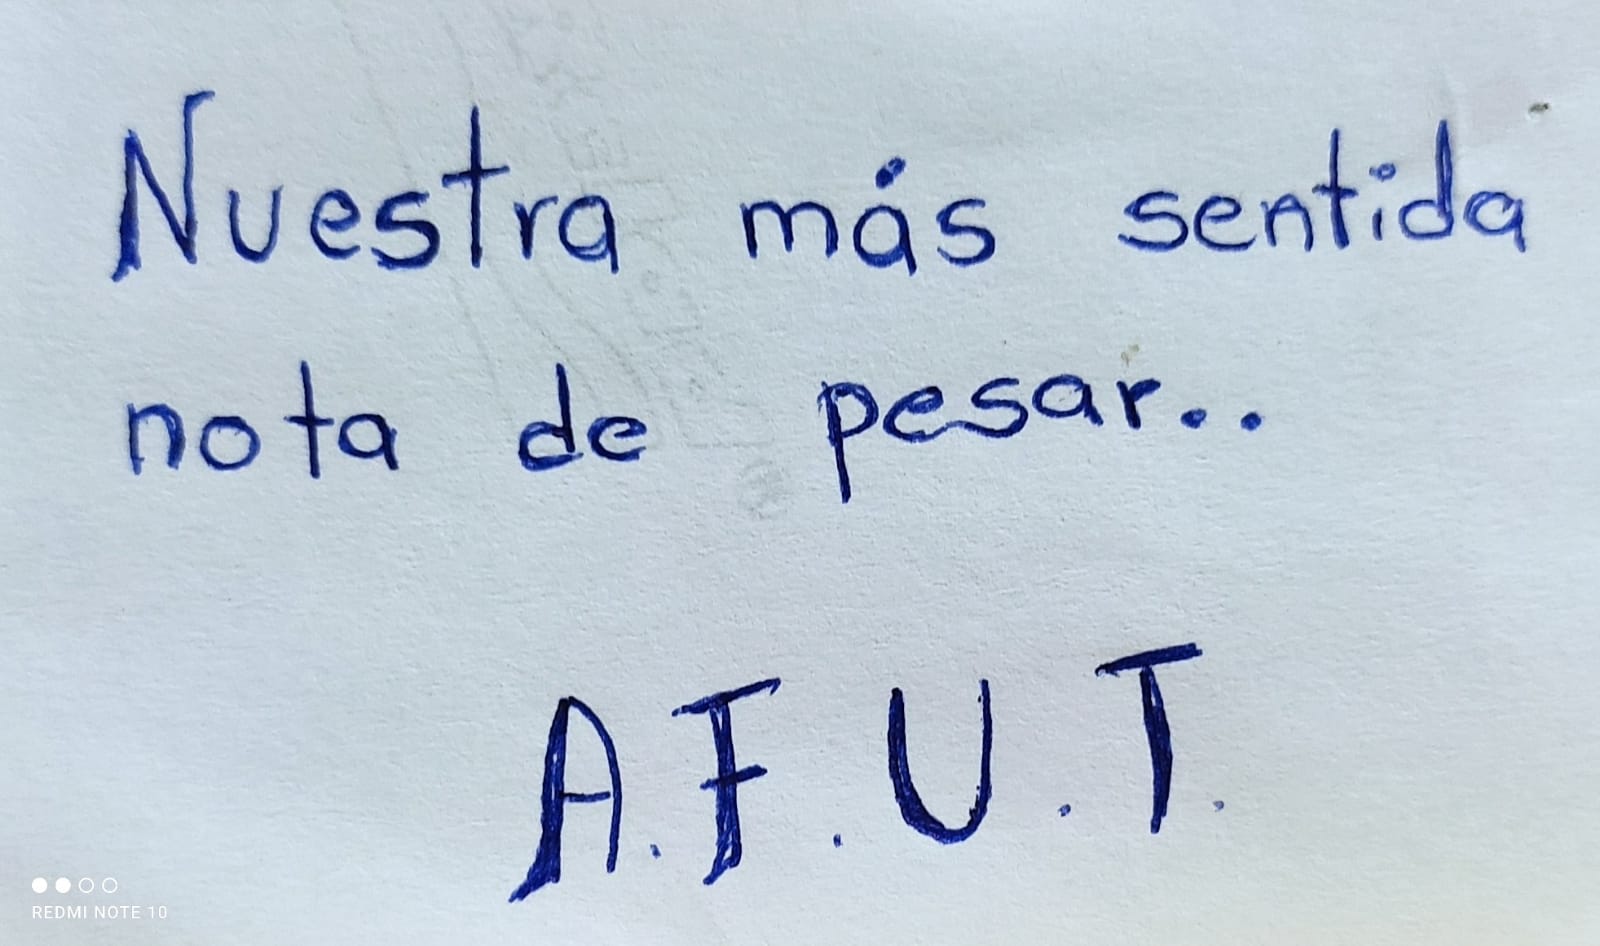 Nuestra más sentida
nota de pesar..
A.F.U.T.
REDMI NOTE 10